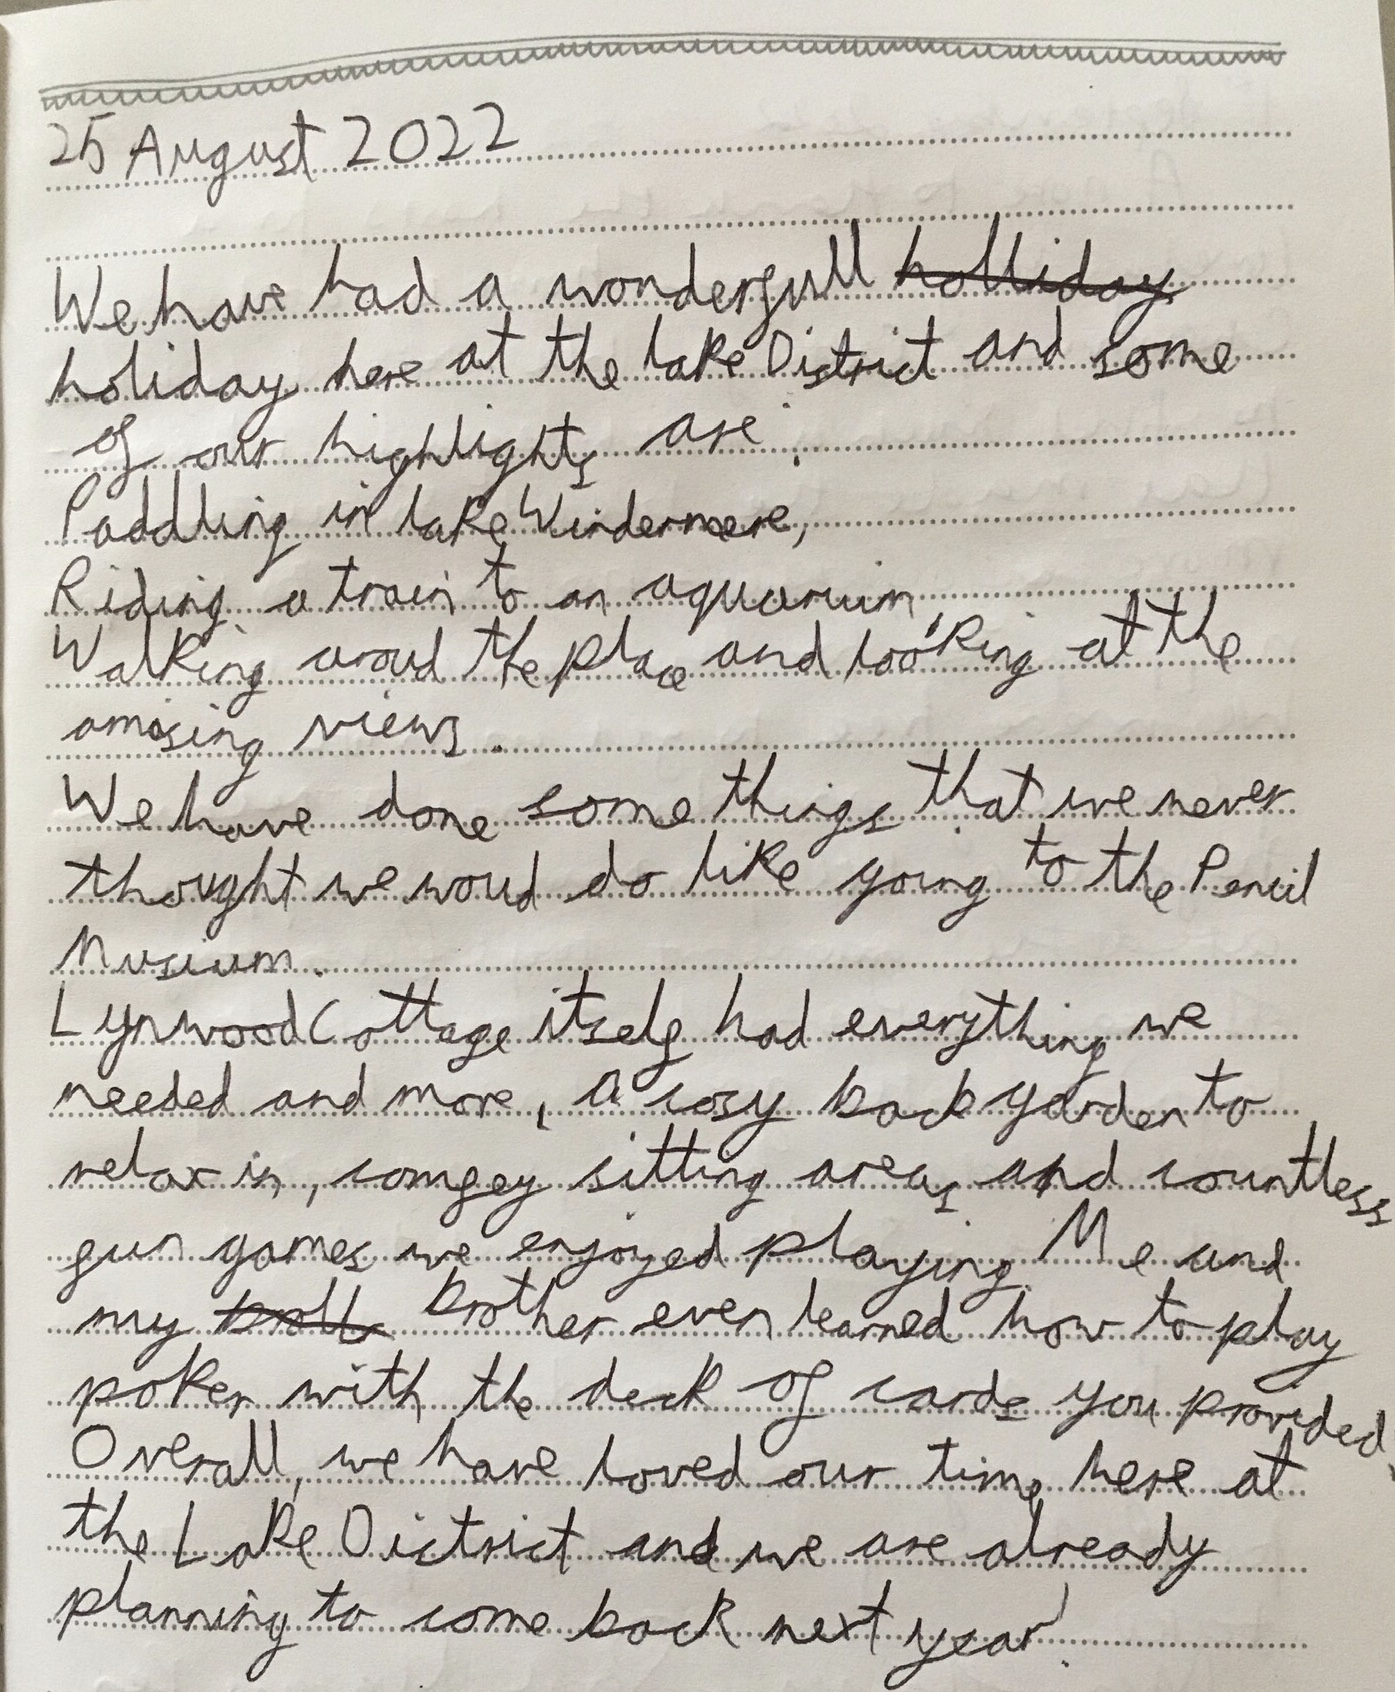 25 August 2022
We have had a wonderfull holliday
holiday here at the lake District and some
of our highlights are:
Paddling in lake Windermere,
Riding a train to an aquarium,
Walking aroud the place and looking at the
amasing views.
We have done some things that we never
thought we woud do like going to the Pencil
Musium.
Lynwood Cottage itself had everything we
needed and more, a cosy back garden to
relax in, comfey sitting areas and countless
fun games we enjoyed playing. Me and
my brother even learned how to play
poker with the deck of cards you provided.
Overall, we have loved our time here at
the Lake District and we are already
planning to come back next year!